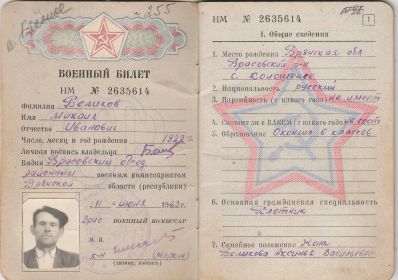 255
ВОЕННЫЙ БИЛЕТ
НМ № 2635614
Фамилия Великов
Имя Михаил
Отчество Иванович
Число, месяц и год рождения 1922
Личная подпись владельца
Выдан Брасовским
районным военным комиссариатом
Брянской области (республики)
11 июня 1963 г.
ВОЕННЫЙ КОМИССАР
М. П.
(звание, подпись)
НМ № 2635614
1
I. Общие сведения
1. Место рождения Брянская обл
Брасовский р-н
с.
2. Национальность русский
3. Партийность (с какого года) не имеет
4. Состоит ли в ВЛКСМ (с какого года) не сост
5. Образование Окончил 6 классов
6. Основная гражданская специальность
Плотник
7. Семейное положение Жена
Великова Аксинья Васильевна